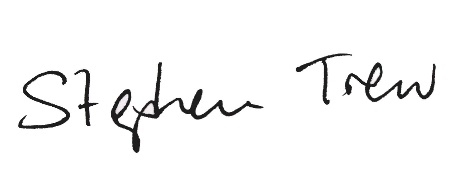 Stephen Trew